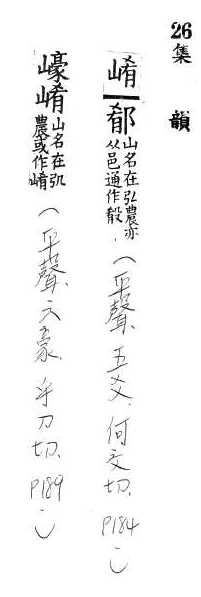 26集 韻
崤
郩山名在弘農亦从邑通作殽(平聲、五爻、何交切、P184)
㠙崤山名在弘農或作崤(平聲、六豪、乎刀切、P189)